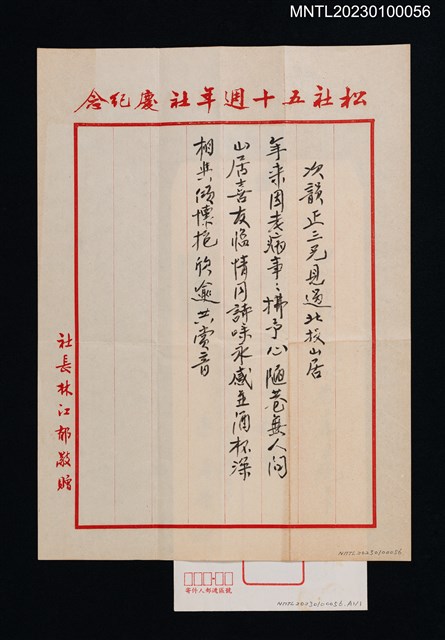 MNTL20230100056
松社五十週年社慶紀念
次韻正三兄見過北投山居
年來因老病事〻拂予心陋巷無人問
山居喜友臨情同詩味永感並酒杯深
相與傾懷抱欣逾共賞音
社長林江郁敬贈
NMTL20230100056
寄件人郵遞區號
NMTL20230100056.AW1